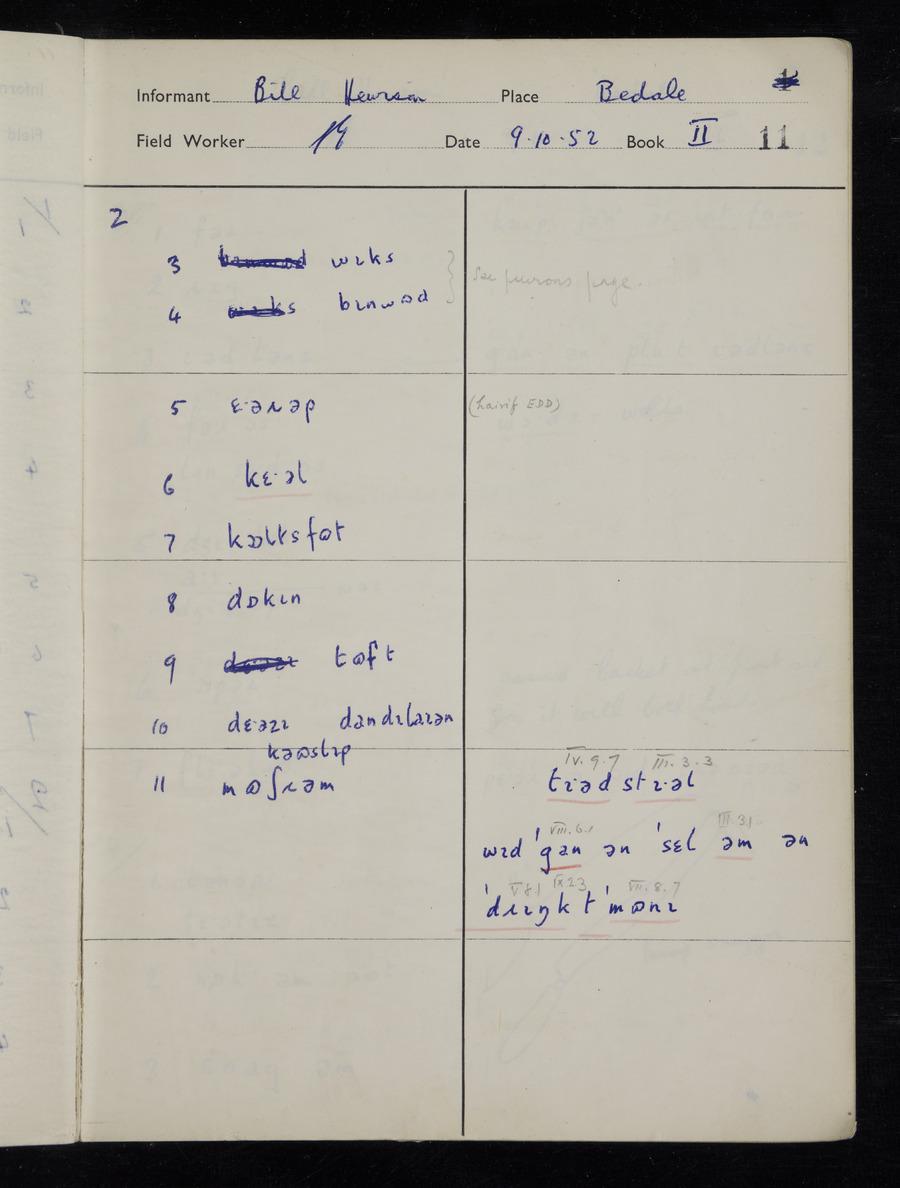 Informant Bill Hewison Place Bedale
Field Worker Date 9.10.52 Book II 11
2
3 wɪks
4 bɪnwəd
See previous page.
5 ɛ·əɹəp
(hairif EDD)
6 kɛ·əl
7 kɒʊltsfʊt
8 dɒkɪn
9 tʊft
10 dɛəzɪ dandɪlaɪən
kəʊslɪp
11 mʊʃɹəm
IV.9.7 III.3.3
tɪ·əd stɪ·əl
VIII.6.1 III.3.1
wɪd ˈgan ən ˈsɛl əm ən
V.8.1 IX.2.3 VII.8.7
ˈdɹɪŋk t ˈmʊnɪ